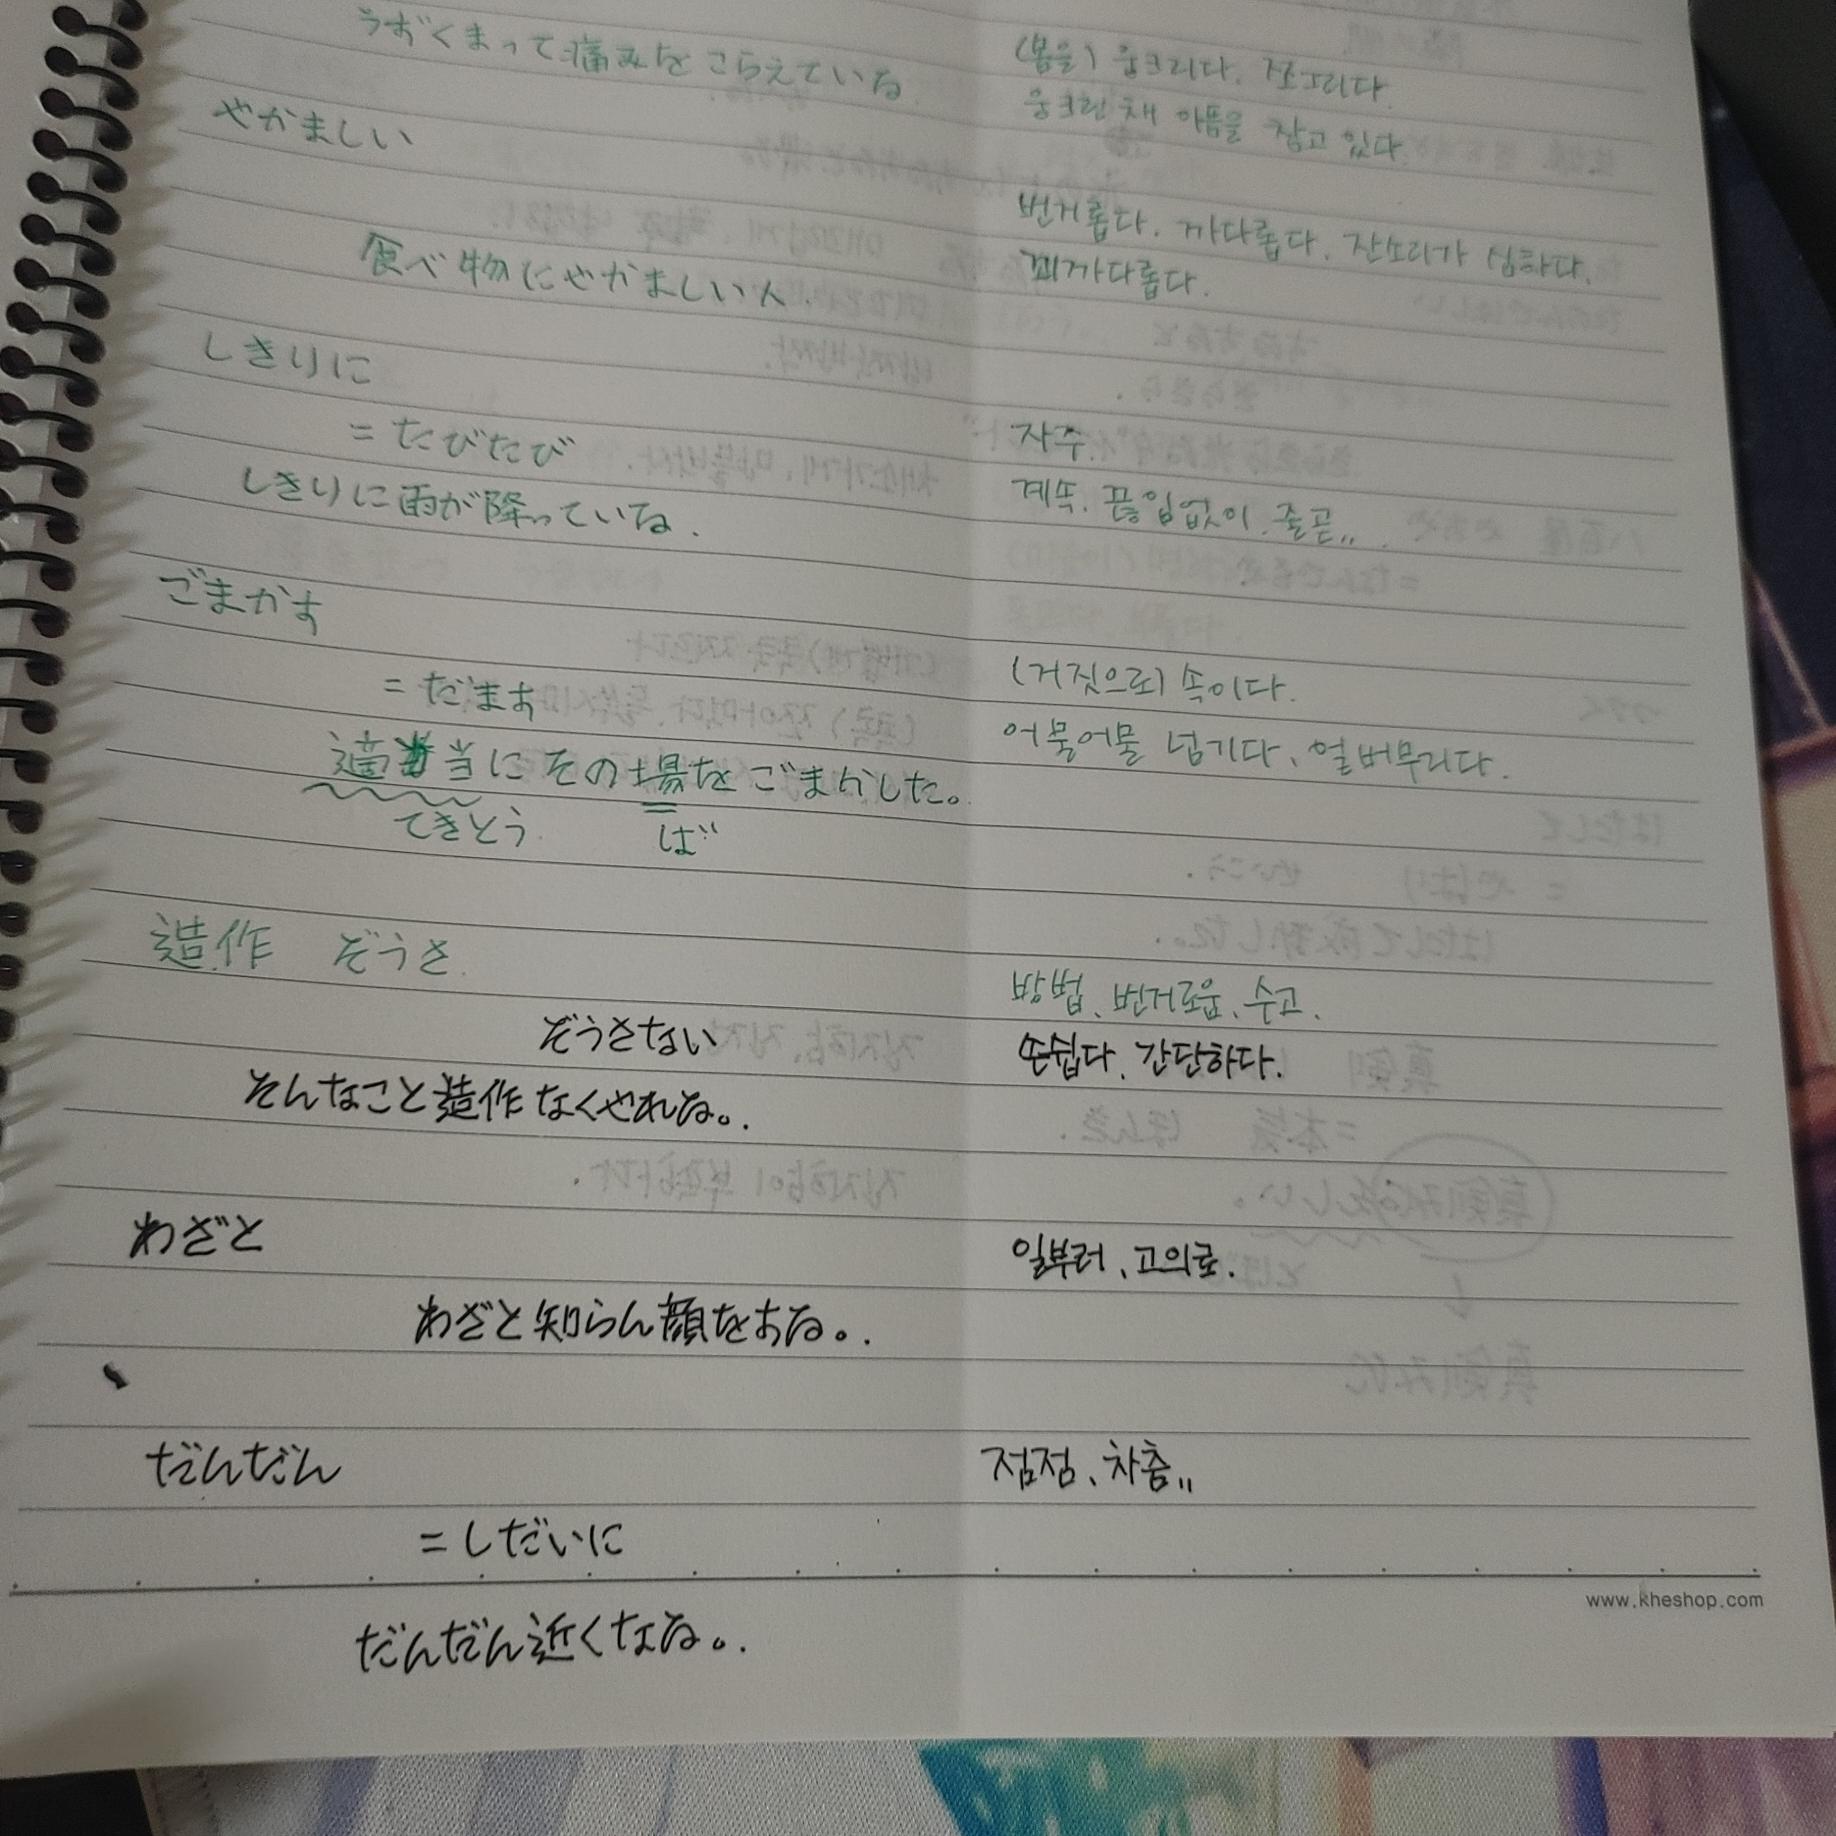 うずくまって痛みをこらえている
(몸을) 웅크리다. 쪼그리다.
웅크린 채 아픔을 참고 있다.
やかましい
번거롭다. 까다롭다. 잔소리가 심하다.
食べ物にやかましい人.
꾀까다롭다.
しきりに
= たびたび
자주.
しきりに雨が降っている.
계속. 끊임없이. 줄곧,,.
ごまかす
= だます
(거짓으로) 속이다.
適当にその場をごまかした。
어물어물 넘기다、얼버무리다.
てきとう ば
造作 ぞうさ.
방법、번거로움、수고.
ぞうさない
손쉽다、간단하다.
そんなこと造作なくやれる。.
わざと
일부러、고의로.
わざと知らん顔をする。.
だんだん
점점、차츰,,
= しだいに
www.kheshop.com
だんだん近くなる。.